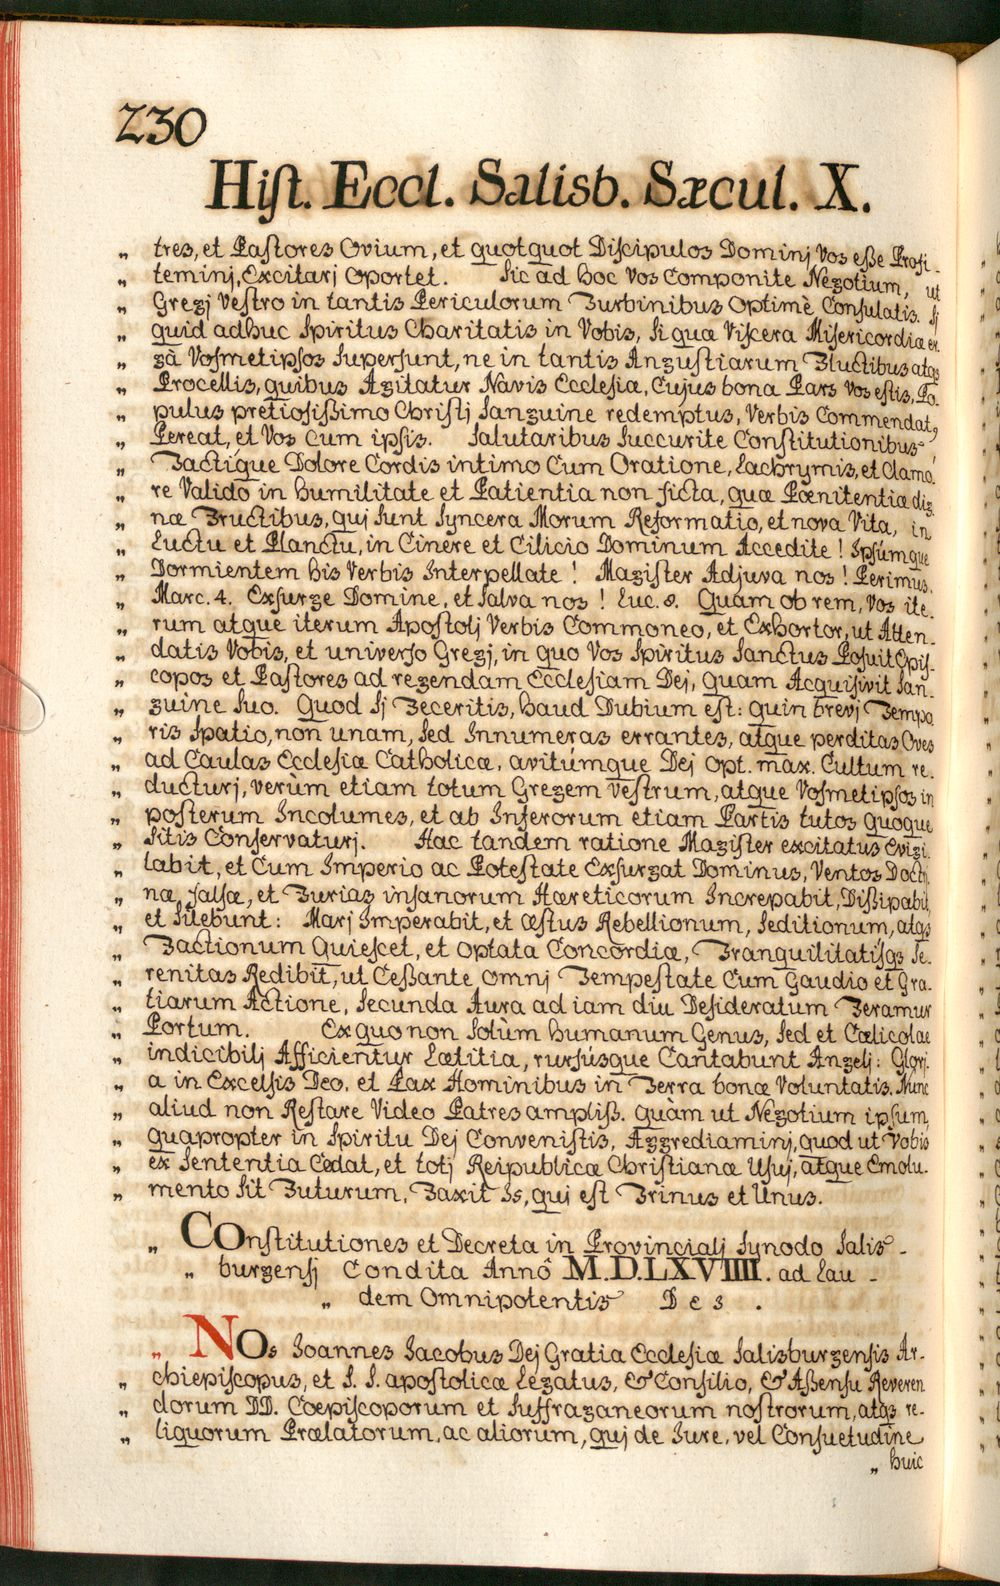 230
Hiſt. Eccl. Salisb. Sæcul. X.
„ tres, et Paſtores Ovium, et quotquot Diſcipulos Dominj Vos eße Profi-
„ teminj, Excitarj Oportet. Sic ad hoc Vos Componite Negotium, ut
„ Gregj Veſtro in tantis Periculorum Turbinibus Optimè Conſulatis. Sj
„ quid adhuc Spiritus Charitatis in Vobis, Si qua Viſcera Miſericordiæ er-
„ gà Voſmetipſos Superſunt, ne in tantis Anguſtiarum Fluctibus atqȝ
„ Procellis, quibus Agitatur Navis Eccleſiæ, Cujus bona Pars Vos eſtis, Po-
„ pulus pretioſißimo Chriſtj Sanguine redemptus, Verbis Commendat,
„ Pereat, et Vos Cum ipſis. Salutaribus Succurite Conſtitutionibus
„ Tactíque Dolore Cordis intimo Cum Oratione, Lachrymis, et Clamo-
„ re Valido in humilitate et Patientia non ficta, quæ Pœnitentiæ dig-
„ næ Fructibus, quj Sunt Syncera Morum Reformatio, et nova Vita, in
„ Luctu et Planctu, in Cinere et Cilicio Dominum Accedite! Ipſúmque
„ Dormientem his Verbis Interpellate! Magiſter Adjuva nos! Perimus.
„ Marc. 4. Exſurge Domine, et Salva nos! Luc. 8. Quam ob rem, Vos ite-
„ rum atque iterum Apoſtolj Verbis Commoneo, et Exhortor, ut Atten-
„ datis Vobis, et univerſo Gregj, in quo Vos Spiritus Sanctus Poſuit Epiſ-
„ copos et Paſtores ad regendam Eccleſiam Dej, quam Acquiſivit San-
„ guine Suo. Quod Sj Feceritis, haud Dubium eſt: quin brevj Tempo-
„ ris Spatio, non unam, Sed Innumeras errantes, atque perditas Oves
„ ad Caulas Eccleſiæ Catholicæ, avitúmque Dej Opt. max. Cultum re-
„ ducturj, verùm etiam totum Gregem Veſtrum, atque Voſmetipſos in
„ poſterum Incolumes, et ab Inferorum etiam Partis tutos quoque
„ Sitis Conſervaturj. Hac tandem ratione Magiſter excitatus Evigi-
„ labit, et Cum Imperio ac Poteſtate Exſurgat Dominus, Ventos Doctri-
„ næ falſæ, et Furias inſanorum Hæreticorum Increpabit, Dißipabit,
„ et Silebunt: Marj Imperabit, et æſtus Rebellionum, Seditionum, atqȝ
„ Factionum Quieſcet, et optata Concordiæ, Tranquilitatiſqȝ Se-
„ renitas Redibit, ut Ceßante omnj Tempeſtate Cum Gaudio et Gra-
„ tiarum Actione, Secunda Aura ad iam diu Deſideratum Feramur
„ Portum. Ex quo non Solùm humanum Genus, Sed et Cœlicolae
„ indicibilj Afficientur Lætitia, rurſúsque Cantabunt Angelj: Glori-
„ a in Excelſis Deo, et Pax Hominibus in Terra bonæ Voluntatis. Nunc
„ aliud non Reſtare Video Patres ampliß. quàm ut Negotium ipſum,
„ quapropter in Spiritu Dej Conveniſtis, Aggrediaminj, quod ut Vobis
„ ex Sententia Cedat, et totj Reipublicæ Chriſtianæ Uſuj, atque Emolu-
„ mento Sit Futurum, Faxit Is, quj eſt Trinus et Unus.
„ COnſtitutiones et Decreta in Provincialj Synodo Salis-
„ burgenſj Condita Annô M.D.LXVIIII. ad Lau-
„ dem Omnipotentis Des.
„ NOs Joannes Jacobus Dej Gratia Eccleſiæ Salisburgenſis Ar-
„ chiepiſcopus, et S. S. apoſtolicæ Legatus, & Conſilio, & Aßenſu Reveren
„ dorum DD. Coëpiſcoporum et Suffraganeorum noſtrorum, atqȝ re-
„ liquorum Prælatorum, ac aliorum, quj de Jure, vel Conſuetudine
„ huic